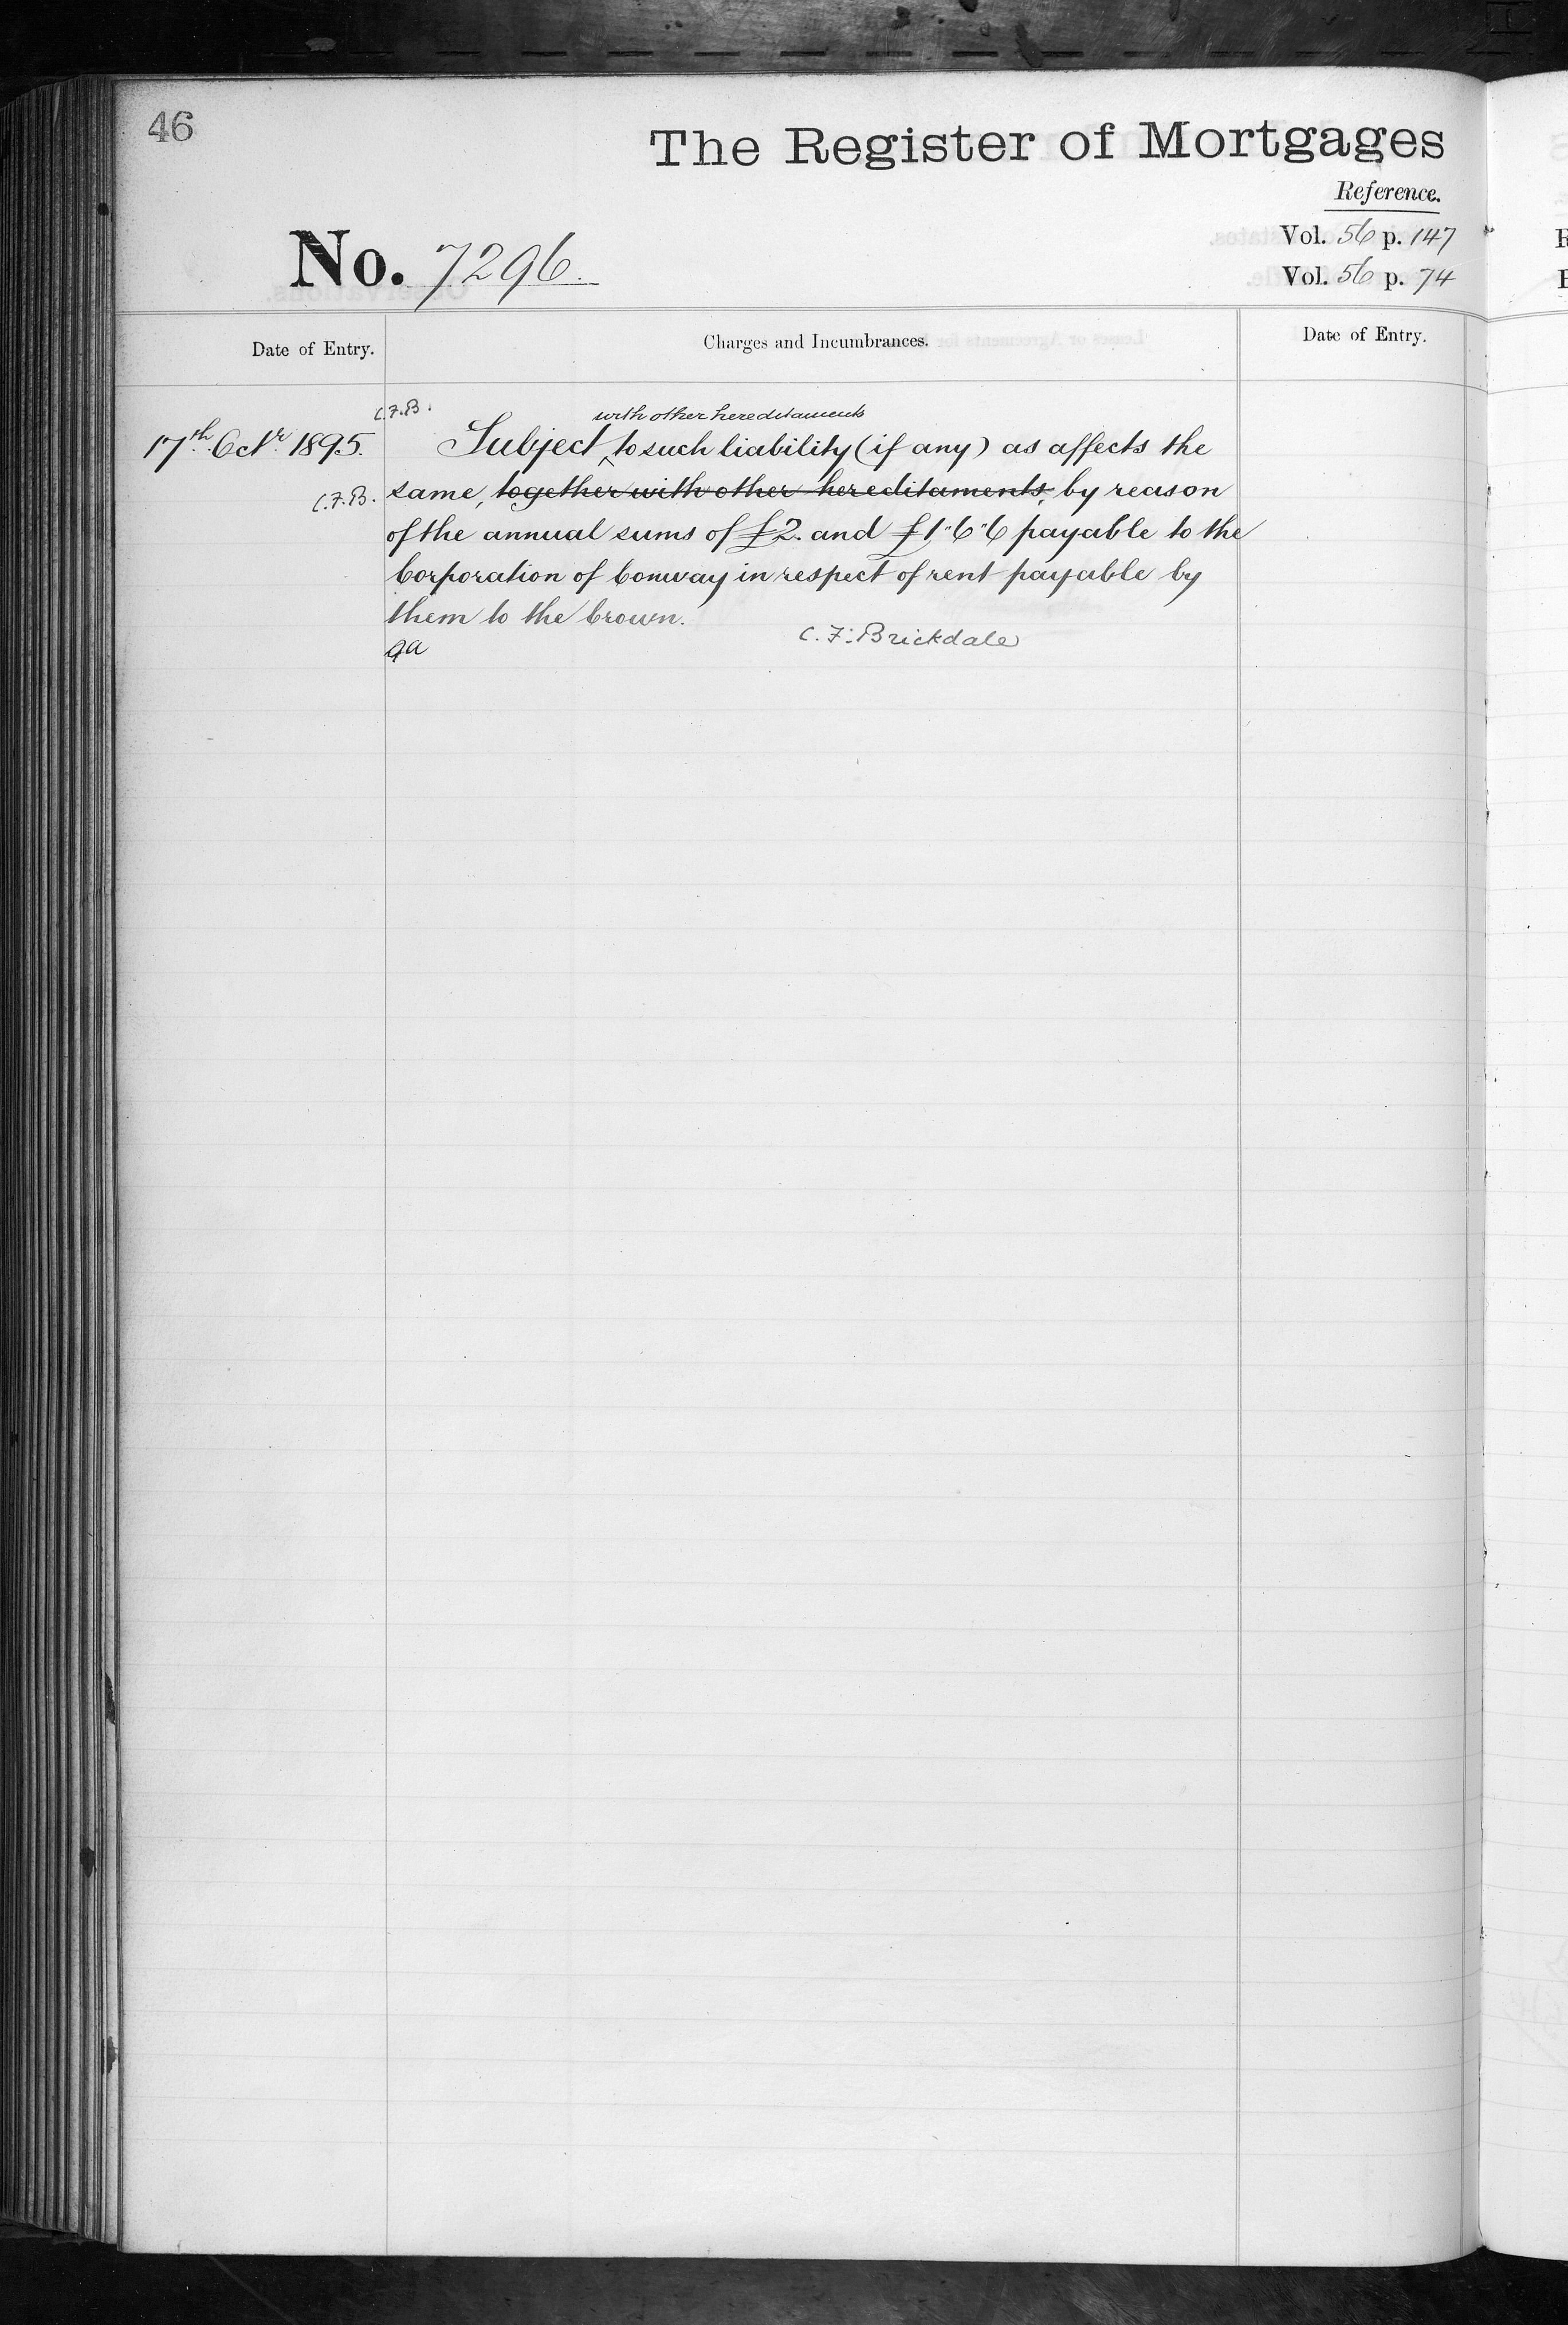 46
The Register of Mortgages
Reference.
No. 7296.
Vol. 56 p. 147
Vol. 56 p. 74
Date of Entry.
Charges and Incumbrances.
Date of Entry.
C.F.B.
with other hereditaments
17th Octr 1895. Subject ^ to such liability (if any) as affects the
C.F.B. same, together with other hereditaments, by reason
of the annual sums of £2. and £1"6"6 payable to the
Corporation of Conway in respect of rent payable by
them to the Crown.
C. F. Brickdale